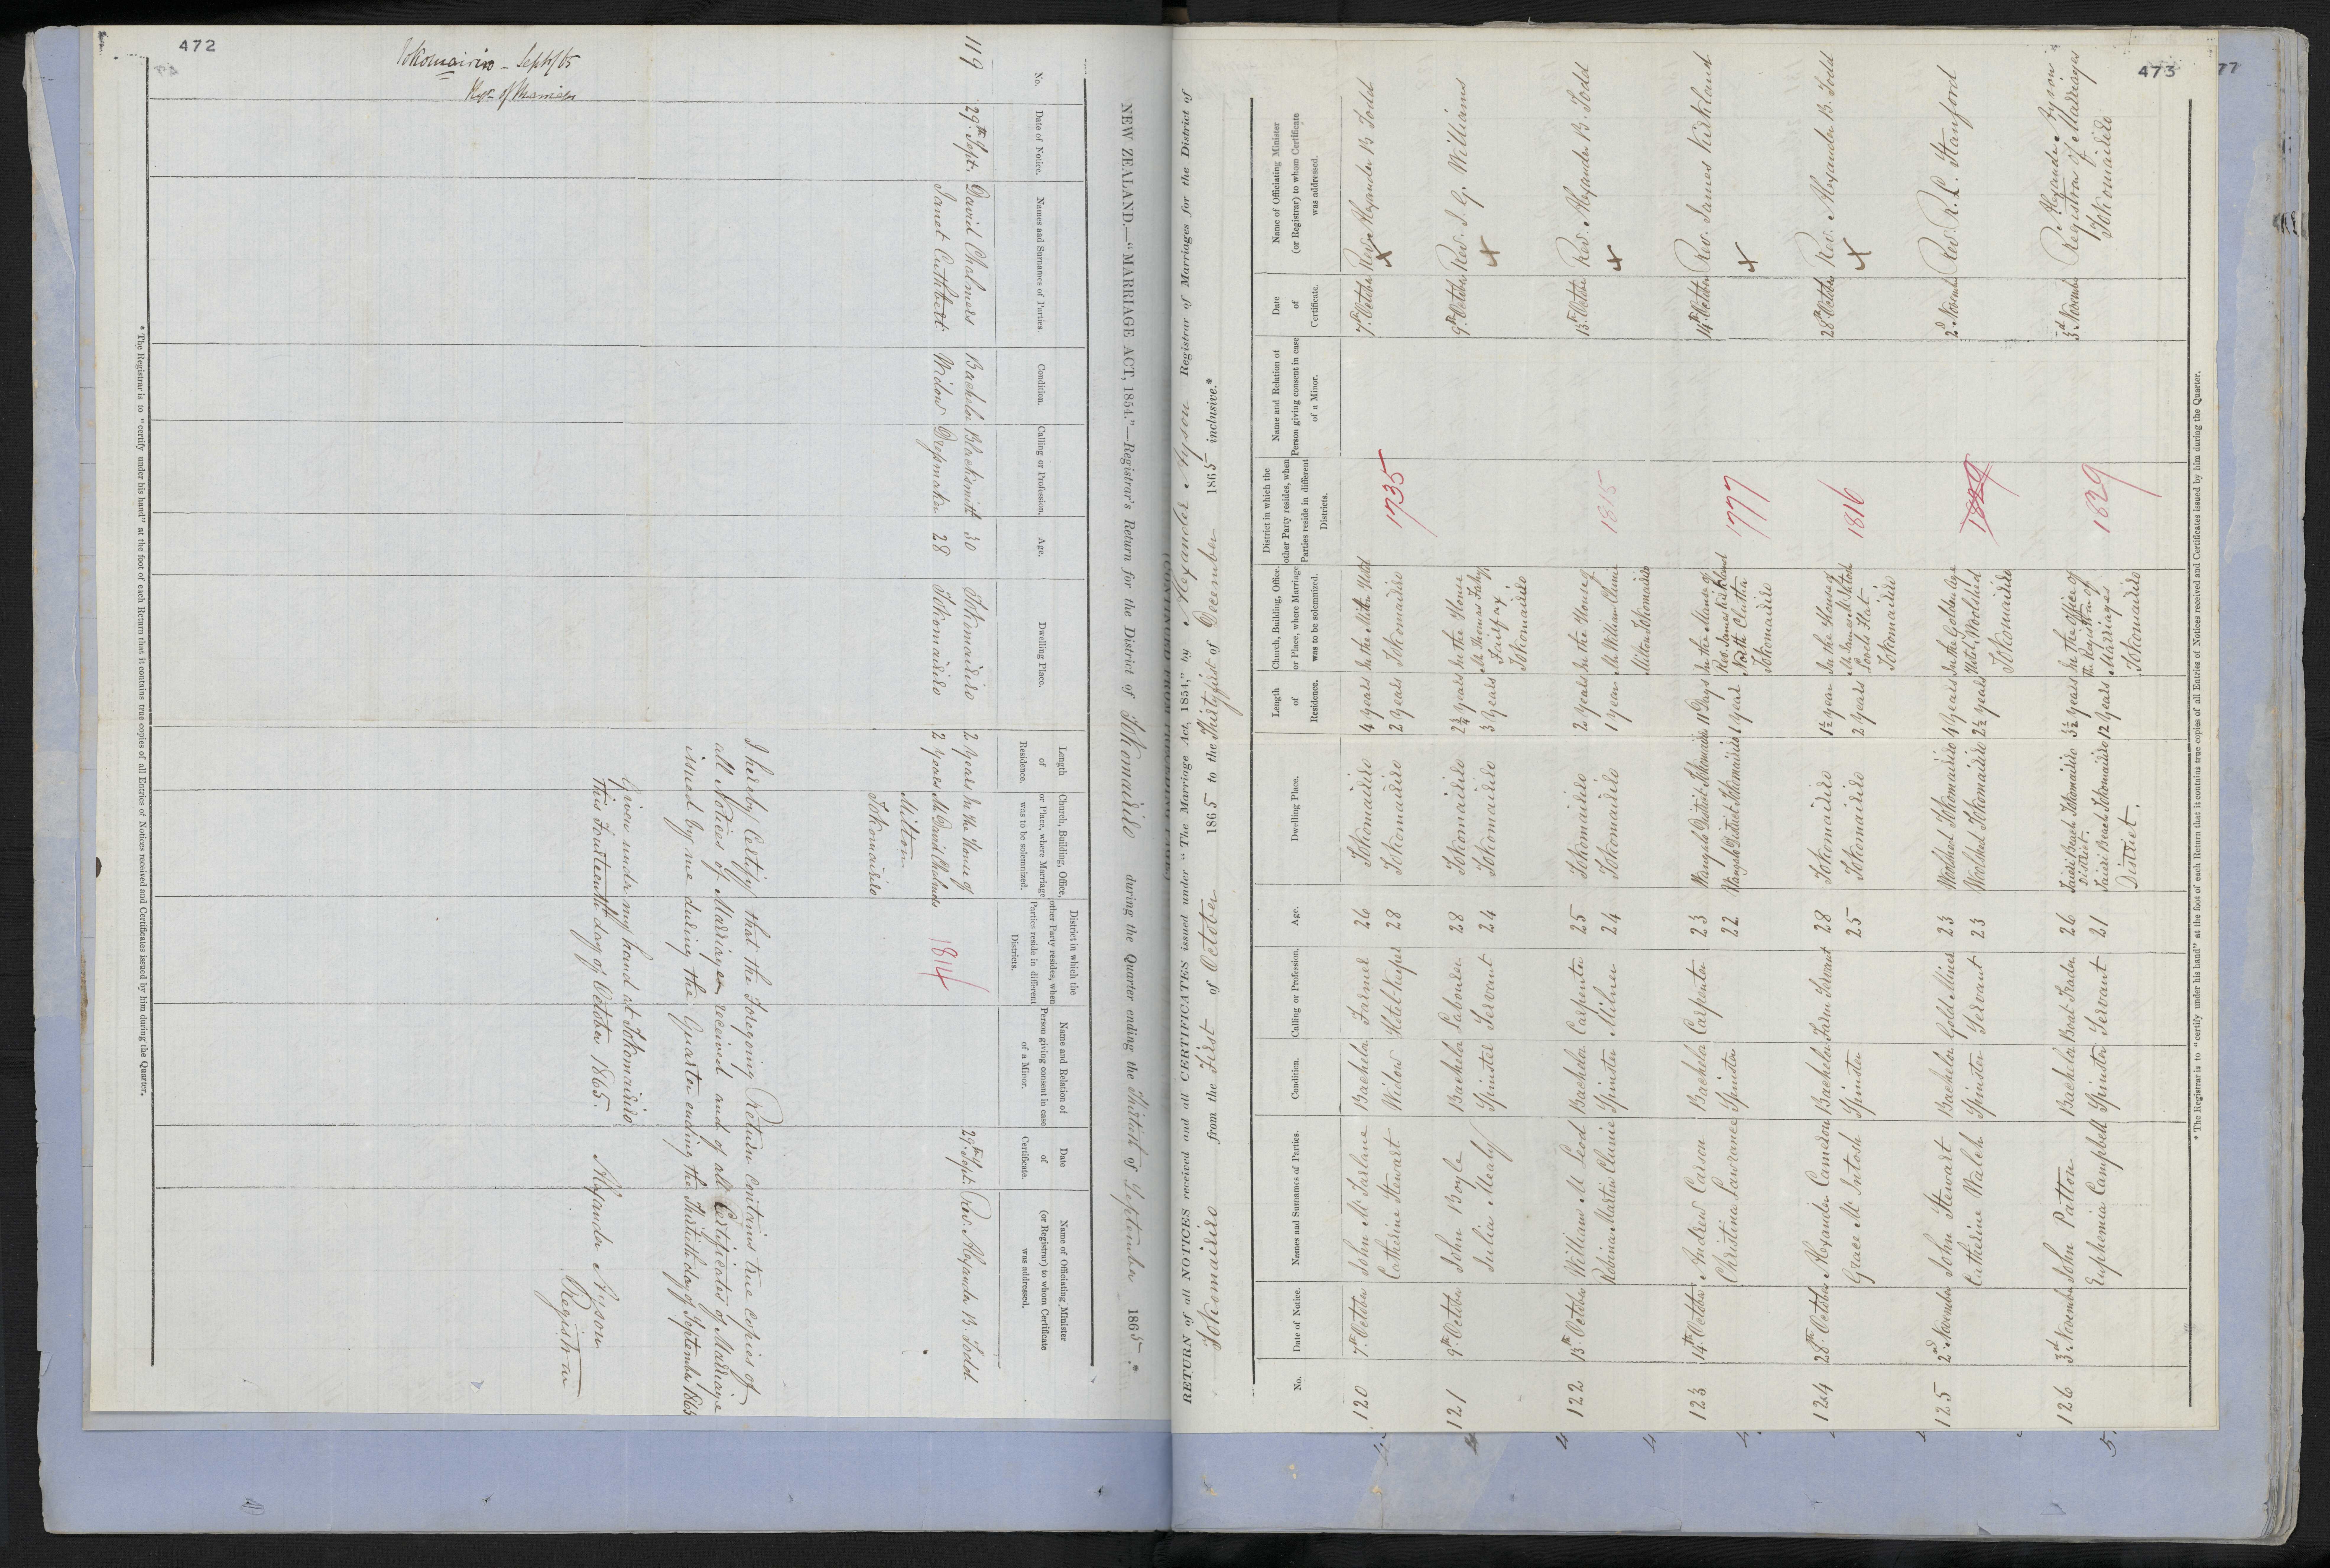 472
Tokomairiro - Sept/65
NEW ZEALAND.—"MARRIAGE ACT, 1854."—Registrar's Return for the District of Tokomairiro during the Quarter ending the Thirtieth of September 1865.*
No. Date of Notice. Names and Surnames of Parties. Condition. Calling or Profession. Age. Dwelling Place. Length of Residence. Church, Building, Office, or Place, where Marriage was to be solemnized. District in which the other Party resides, when Parties reside in different Districts. Name and Relation of Person giving consent in case of a Minor. Date of Certificate. Name of Officiating Minister (or Registrar) to whom Certificate was addressed.
119 29th Sept. David Chalmers Bachelor Blacksmith 30 Tokomairiro 2 years In the House of 29th Sept. Rev. Alexander B. Todd
Janet Cuthbert Widow Dressmaker 28 Tokomairiro 2 years Mr David Chalmers 1814
Milton
Tokomairiro
I hereby Certify that the Foregoing Return contains true copies of
all Notices of Marriages received and of all Certificates of Marriage
issued by me during the Quarter ending the Thirtieth day of September 1865
Given under my hand at Tokomairiro
this Fourteenth day of October 1865.
Alexander Ayson
Registrar
* The Registrar is to "certify under his hand" at the foot of each Return that it contains true copies of all Entries of Notices received and Certificates issued by him during the Quarter.
473
77
RETURN of all NOTICES received and all CERTIFICATES issued under "The Marriage Act, 1854," by Alexander Ayson Registrar of Marriages for the District of
Tokomairiro from the First of October 1865 to the Thirtyfirst of December 1865 inclusive.*
No. Date of Notice. Names and Surnames of Parties. Condition. Calling or Profession. Age. Dwelling Place. Length of Residence. Church, Building, Office, or Place, where Marriage was to be solemnized. District in which the other Party resides, when Parties reside in different Districts. Name and Relation of Person giving consent in case of a Minor. Date of Certificate. Name of Officiating Minister (or Registrar) to whom Certificate was addressed.
120 7th October John McFarlane Bachelor Farmer 26 Tokomairiro 4 years In the Milton Hotel 7th October Rev. Alexander B Todd
Catherine Stewart Widow Hotel-keeper 28 Tokomairiro 2 years Tokomairiro 1735
121 9th October John Boyle Bachelor Labourer 28 Tokomairiro 2½ years In the House 9th October Rev. J. G. Williams
Julia Mealy Spinster Servant 24 Tokomairiro 3 years Mr Thomas Fahey
Fairfax
Tokomairiro
122 13th October William McLeod Bachelor Carpenter 25 Tokomairiro 2 years In the House of 13th October Rev. Alexander B. Todd
Robina Martin Clunie Spinster Milner 24 Tokomairiro 1 year Mr William Clunie 1815
Milton Tokomairiro
123 14th October Andrew Carson Bachelor Carpenter 23 Wangaloa District Tokomairiro 11 Days In the Manse of 14th October Rev. James Kirkland
Christina Lawrance Spinster 22 Wangaloa District Tokomairiro 1 year Rev. James Kirkland 1777
North Clutha
Tokomairiro
124 28th October Alexander Cameron Bachelor Farm Servant 28 Tokomairiro 1½ year In the House of 28th October Rev. Alexander B. Todd
Grace McIntosh Spinster 25 Tokomairiro 2 years Mr James McIntosh 1816
Lovels Flat
Tokomairiro
125 2nd November John Stewart Bachelor Gold Miner 23 Woolshed Tokomairiro 4 years In the Golden Age 2d November Rev. R. L. Stanford
Catherine Walsh Spinster Servant 23 Woolshed Tokomairiro 2½ years Hotel, Woolshed 1829
Tokomairiro
126 3rd November John Patton Bachelor Boat Trader 26 Taieri Beach Tokomairiro District. 3½ years In the Office of 3rd November Alexander Ayson
Euphemia Campbell Spinster Servant 21 Taieri Beach Tokomairiro District. 12 years the Registrar of Marriages 1829 Registrar of Marriages
Tokomairiro Tokomairiro
* The Registrar is to "certify under his hand" at the foot of each Return that it contains true copies of all Entries of Notices received and Certificates issued by him during the Quarter.